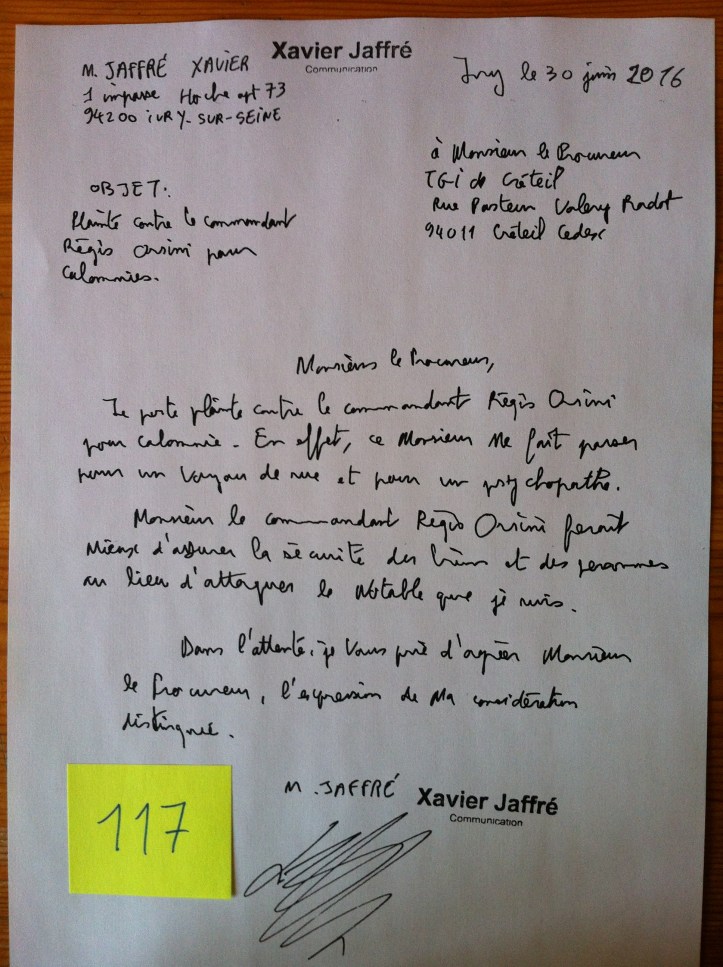 Xavier Jaffré
Communication
M. JAFFRÉ XAVIER
1 impasse Hoche apt 73
94200 iVRY-SUR-SEINE
Ivry le 30 juin 2016
à Monsieur le Procureur
TGi de Créteil
Rue Pasteur Valery Radot
94011 Créteil Cedex
OBJET.
Plainte contre le commandant
Régis Orsini pour
calomnies.
Monsieur le Procureur,
Je porte plainte contre le commandant Régis Orsini
pour calomnie. En effet, ce Monsieur me fait passer
pour un voyou de rue et pour un psychopathe.
Monsieur le commandant Régis Orsini ferait
mieux d'assurer la sécurité des biens et des personnes
au lieu d'attaquer le notable que je suis.
Dans l'attente, je vous prie d'agréer Monsieur
le Procureur, l'expression de ma considération
distinguée.
M. JAFFRÉ
Xavier Jaffré
Communication
117